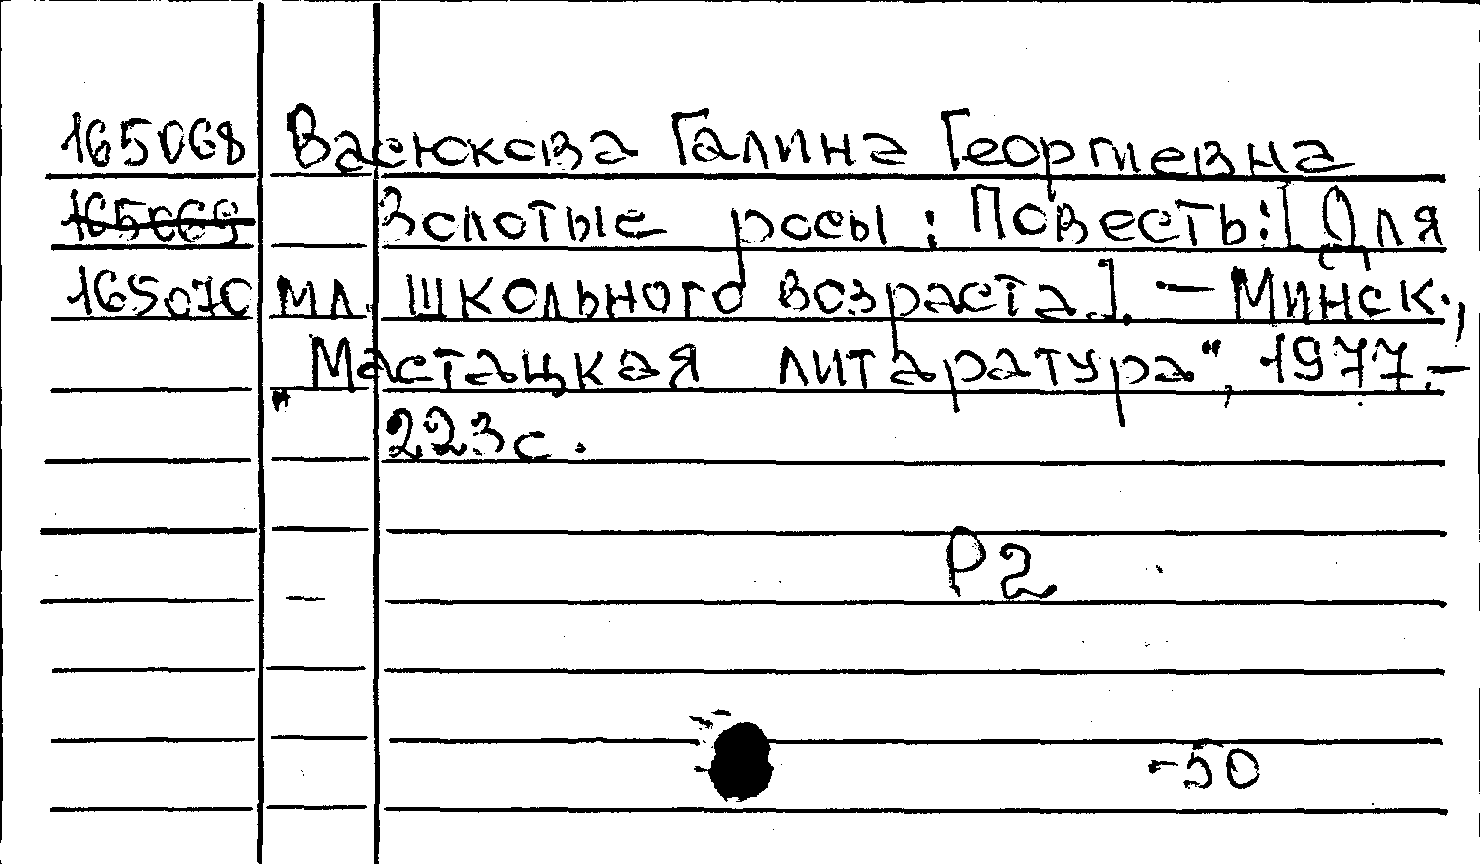 165068 Васюкова Галина Георгиевна
165069 Золотые росы: Повесть: [Для
165070 мл. школьного возраста]. — Минск.,
"Мастацкая литаратура", 1977.—
223с.
Р2
-50